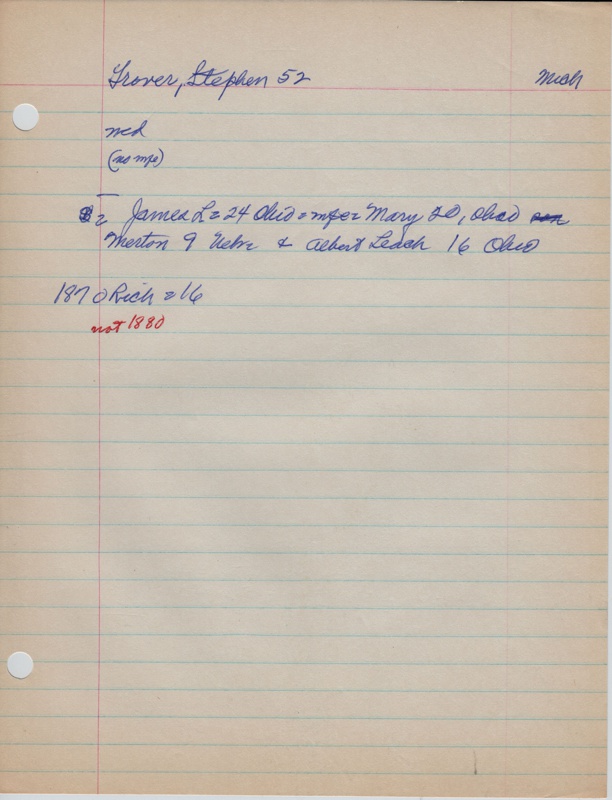 Trover, Stephen 52 Mich
med
(no mfe)
= James L = 24 Ohio = mfe = Mary 20, Ohio
Merton 9 Nebr & Albert Leach 16 Ohio
1870 Rich = 16
not 1880